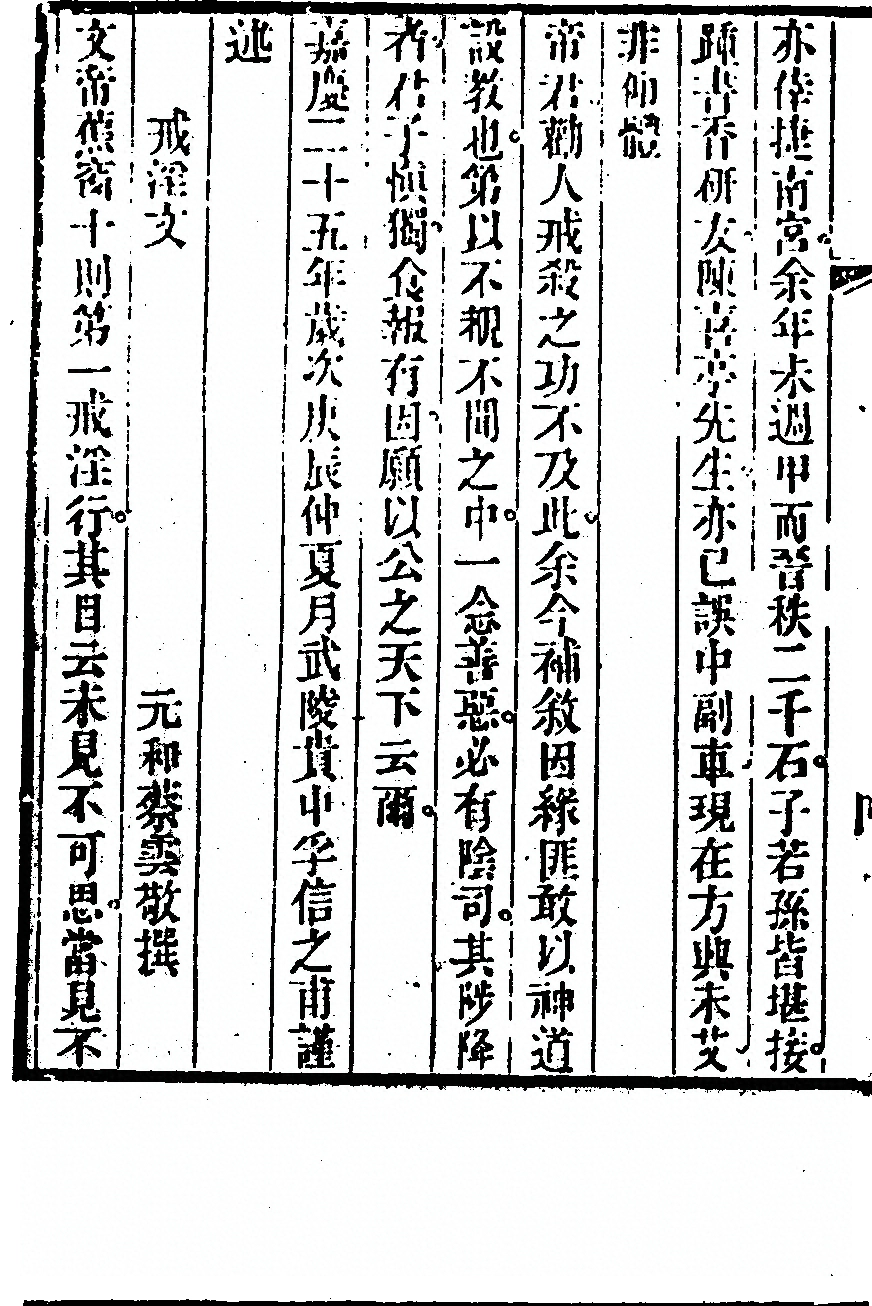 亦倖捷南宮余年未週甲而晉秩二千石子若孫皆堪接
踵書香研友陳喜亭先生亦已誤中副車現在方興未艾
非仰體
帝君勸人戒殺之功不及此余今補敘因緣匪敢以神道
設教也第以不覩不聞之中一念善惡必有陰司其陟降
者君子慎獨食報有因願以公之天下云爾
嘉慶二十五年歲次庚辰仲夏月武陵貴中孚信之甫謹
述
戒淫文
元和蔡雲敬撰
文帝蕉窗十則第一戒淫行其目云未見不可思當見不